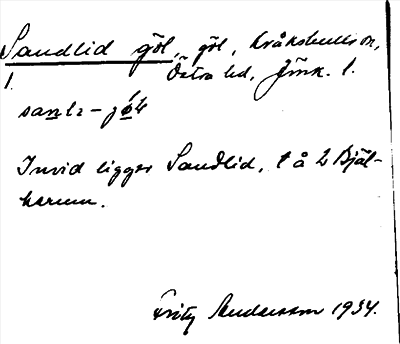 Sandlid göl, göl, Kråkshult sn,
1. Östra hd, Jönk. l.
Invid ligger Sandlid, t å 2 Bjäl-
karum.
Fritz Andersson 1934.